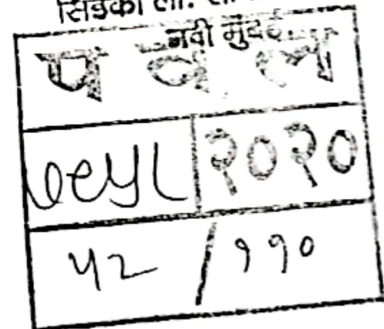 सिडको ली.
नवी मुंबई
प व ल
२०२०
५२ / ११०